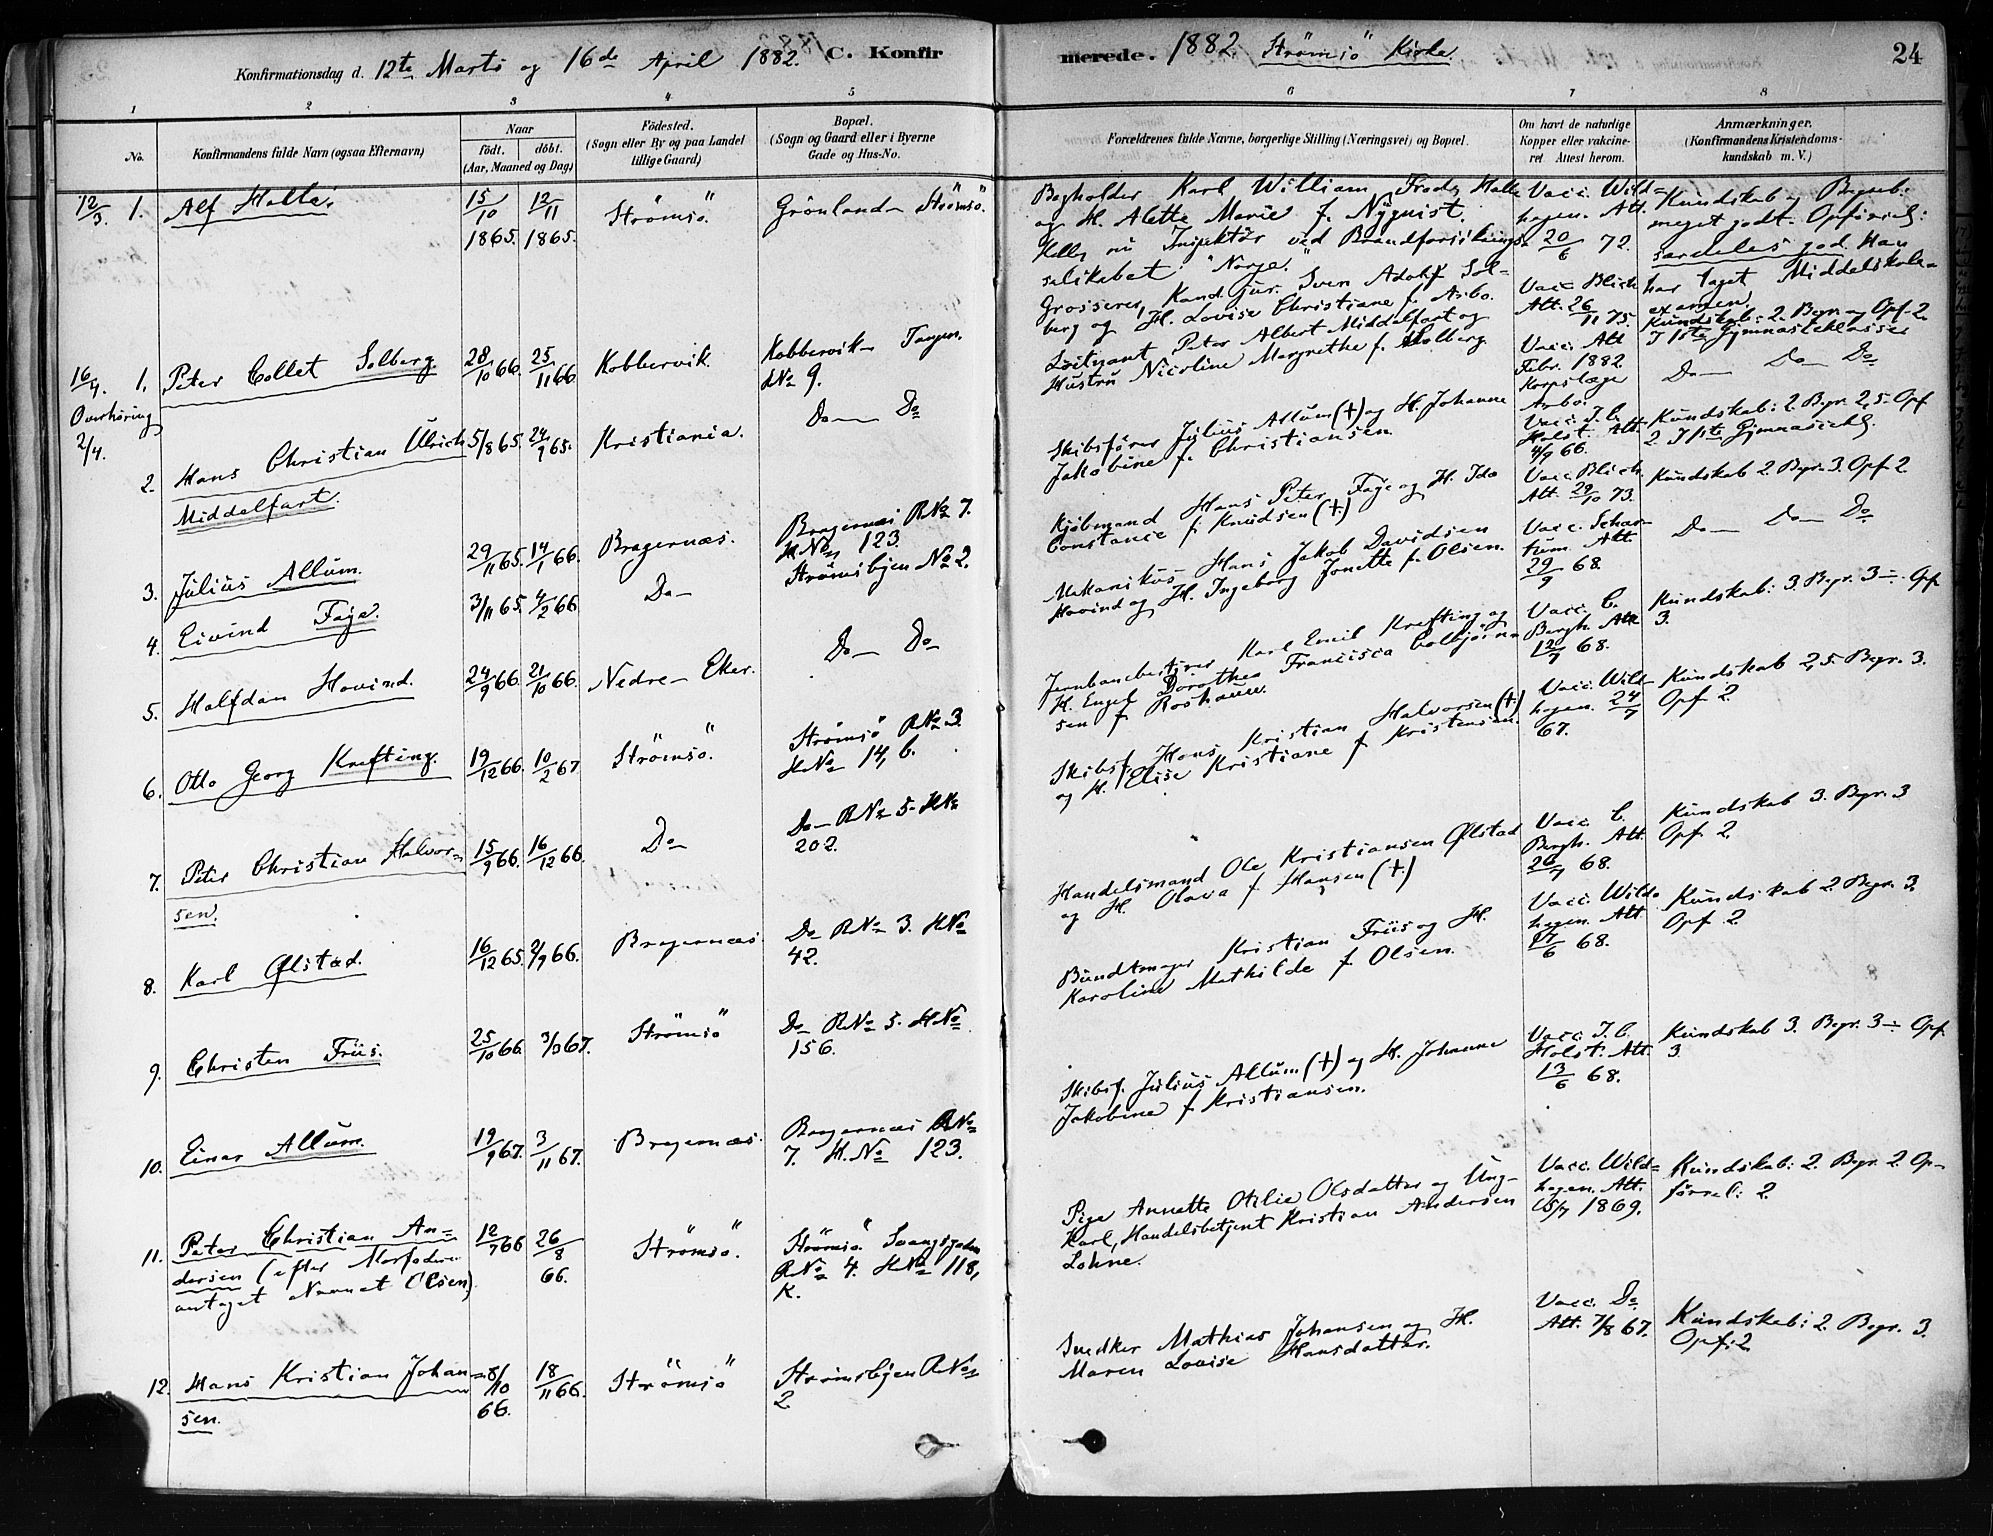 Konfirmationsdag d. 12te Marts og 16de April 1882. C. Konfir
merede. 1882 Strömsö Kirke. 24
1 2 3 4 5 6 7 8
No.
Konfirmandens fulde Navn (ogsaa Efternavn)
Naar
födt. döbt.
(Aar, Maaned og Dag)
Födested.
(Sogn eller By og paa Landet
tillige Gaard)
Bopæl.
(Sogn og Gaard eller i Byerne
Gade og Hus-No.
Forældrenes fulde Navne, borgerlige Stilling (Næringsvei) og Bopæl.
Om havt de naturlige
Kopper eller vaccine-
ret Attest herom.
Anmærkninger.
(Konfirmandens Kristendoms-
kundskab m. V.)
12/3. 1. Alf Holte. 15/10 1865. 12/11 1865. Strömsö. Grönland Strömsö.
Bogholder Karl William Holte
og H. Alette Marie f. Nyquist.
nu Inspektör ved Brandforsikrings
selskabet "Norge."
Vacc. Wild=
hagen. Att.
20/6 72.
Kundskab og Begreb:
meget godt. Opförsel:
særdeles god. Han
har taget Middelskole-
examen.
16/4. 1. Peter Collet Solberg. 28/10 66. 25/11 66. Kobbervik. Kobbervik Tangen.
No 9.
Overhöring
2/4.
Grosserer, Kand. jur. Sven Adolf Sol-
berg og H. Lovise Christiane f. Arbo.
Vacc. Blich
Att. 26/11 75.
Kundskab: 2. Begr. og Opf. 2.
I 1ste Gymnasieklasse
2. Hans Christian Ulrich 5/8 65. 24/9 65. Kristiania. Do Do
Middelfart.
Löitnant Peter Albert Middelfart og
Hustru Nicoline Margrethe f. Solberg.
Vacc. Att
Febr. 1882.
Korpslæge
Arbo.
Do Do Do
3. Julius Allum. 29/11 65. 14/1 66. Bragernæs. Bragernæs R No 7.
H No 123.
Skibsförer Julius Allum (+) og H. Johanne
Jakobine f. Christiansen.
Vacc. J. C.
Holst. Att.
4/9 66.
Kundskab: 2. Begr. 2,5. Opf
2. I 1ste Gymnasiekl.
4. Eivind Faye. 3/11 65. 4/2 66. Do Strömsbyen No 2.
Kjöbmand Hans Peter Faye og H. Ida
Constance f. Knudsen (+)
Vacc. Blich.
Att. 29/10 73.
Kundskab 2. Begr. 3. Opf. 2
5. Halfdan Hovind. 24/9 66. 21/10 66. Nedre Eker. Do Do
Mekanikus Hans Jakob Davidsen
Hovind og H. Ingeborg Jonette f. Olsen.
Vacc. Schar-
tum. Att.
29/9 68.
Do Do Do
6. Otto Georg Krefting. 19/12 66. 10/2 67. Strömsö. Strömsö R No 3.
H No 14, b.
Jernbanebestyrer Karl Emil Krefting og
H. Engel Dorothea Francisca Colbjörn-
sen f. Roshauw.
Vacc. C.
Bergh. Att
12/7 68.
Kundskab: 3. Begr. 3 ÷. Opf.
3.
7. Peter Christian Halvor- 15/9 66. 16/12 66. Do Do R No 5. H No
sen. 202.
Skibsf. Hans Kristian Halvorsen (+)
og H. Elise Kristiane f. Kristensen.
Vacc. Wild-
hagen. 24/7
67.
Kundskab 2,5. Begr. 3.
Opf. 2.
8. Karl Ølstad. 16/12 65. 2/9 66. Bragernæs. Do R No 3. H No
42.
Handelsmand Ole Kristiansen Ølstad
og H. Olava f. Hansen (+)
Vacc. C.
Bergh. Att.
20/7 68.
Kundskab 3. Begr. 3
Opf. 2.
9. Christen Friis. 25/10 66. 67. Strömsö Do R No 5. H No
156.
Bundtmager Kristian Friis og H.
Karoline Mathilde f. Olsen.
Vacc. Wild=
hagen. Att.
17/6 68.
Kundskab 2. Begr. 3.
Opf. 2
10. Einar Allum. 19/9 67. 3/11 67. Bragernæs. Bragernæs R No
7. H. No 123.
Skibsf. Julius Allum (+) og H. Johanne
Jakobine f. Kristiansen.
Vacc. J. C.
Holst. Att.
13/6 68.
Kundskab 3. Begr. 3 ÷ Opf.
3
11. Peter Christian An= 12/7 66 26/8 66. Strömsö. Strömsö. Svangsgaden
dersen (efter Morfaderen R No 4. H No 118,
antaget Navnet Olsen) K.
Pige Annette Otilie Olsdatter og Ung-
Karl, Handelsbetjent Kristian Andersen
Lohne.
Vacc. Wild=
hagen. Att.
1869.
Kundskab: 2. Begr. 2. Op-
försel: 2.
12. Hans Kristian Johan- 8/10 66. 18/11 66. Strömsö Strömsbyen R No
sen. 2.
Snedker Mathias Johansen og H.
Maren Lovise Hansdatter.
Vacc. Do
Att. 7/8 67.
Kundskab: 2. Begr. 3.
Opf: 2